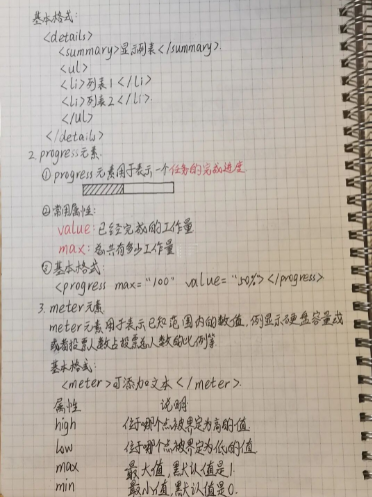 基本格式:
<details>
<summary>显示列表</summary>
<ul>
<li>列表1</li>
<li>列表2</li>
</ul>
</details>
2. progress元素.
①progress元素用于表示一个任务的完成进度
②常用属性:
value:已经完成的工作量
max:总共有多少工作量
③基本格式:
<progress max="100" value="50%"></progress>
3. meter元素
meter元素用于表示已知范围内的数值,例显示硬盘容量或
或者投票人数占投票总人数的比例等
基本格式:
<meter>可添加文本</meter>.
属性 说明
high 位于哪个点被界定为高的值
low 位于哪个点被界定为低的值
max 最大值,默认值是1.
min 最小值,默认值是0.